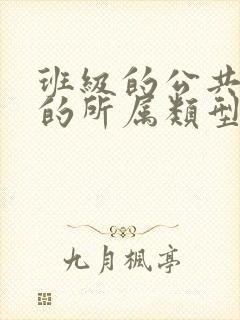 班級的公共
的所属類型
九月楓亭